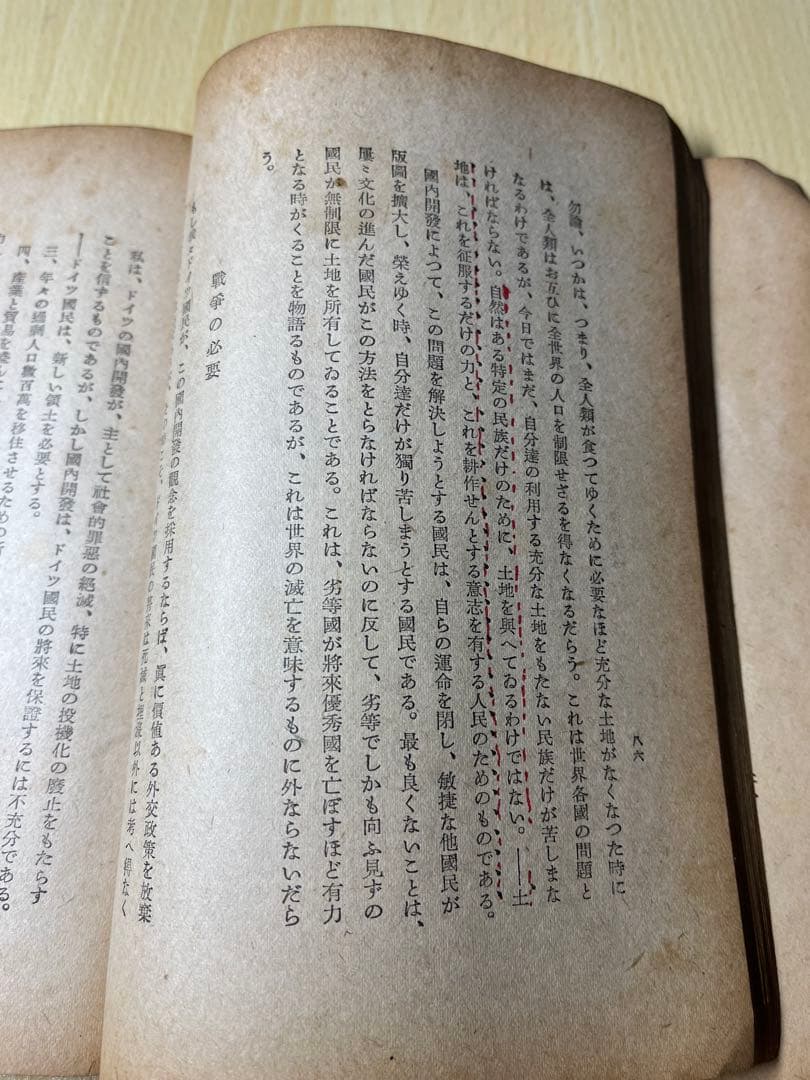 八六
勿論、いつかは、つまり、全人類が食つてゆくために必要なほど充分な土地がなくなつた時に
は、全人類はお互ひに全世界の人口を制限せざるを得なくなるだらう。これは世界各國の問題と
なるわけであるが、今日ではまだ、自分達の利用する充分な土地をもたない民族だけが苦しまな
ければならない。自然はある特定の民族だけのために、土地を與へてゐるわけではない。――土
地は、これを征服するだけの力と、これを耕作せんとする意志を有する人民のためのものである。
國內開發によつて、この問題を解決しようとする國民は、自らの運命を閉し、敏捷な他國民が
版圖を擴大し、榮えゆく時、自分達だけが獨り苦しまうとする國民である。最も良くないことは、
屢〻文化の進んだ國民がこの方法をとらなければならないのに反して、劣等でしかも向ふ見ずの
國民が無制限に土地を所有してゐることである。これは、劣等國が將來優秀國を亡ぼすほど有力
となる時がくることを物語るものであるが、これは世界の滅亡を意味するものに外ならないだら
う。
戰爭の必要
ドイツ國民が、この國內開發の觀念を採用するならば、眞に價値ある外交政策を放棄
將來は死滅と
以外には考へ得なく
私は、ドイツの國內開發が、主として社會的罪惡の絕滅、特に土地の投機化の廢止をもたらす
ことを信ずるものであるが、しかし國內開發は、ドイツ國民の將來を保證するには不充分である。
――ドイツ國民は、新しい領土を必要とする。
三、年々の過剩人口數百萬を移住させるための
四、產業と貿易を